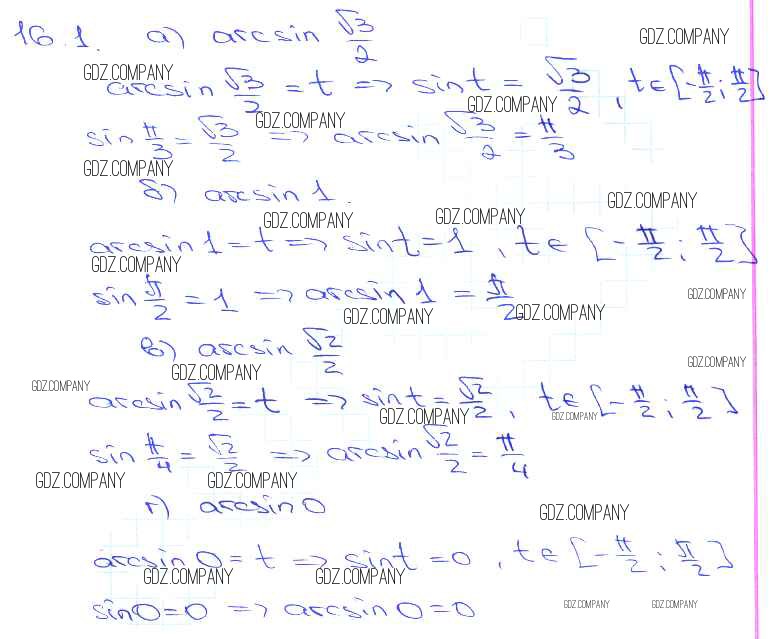 16.1. а) arcsin √3/2
GDZ.COMPANY
GDZ.COMPANY
arcsin √3/2 = t => sin t = √3/2, t∈[-π/2; π/2]
GDZ.COMPANY
GDZ.COMPANY
sin π/3 = √3/2 => arcsin √3/2 = π/3
GDZ.COMPANY
б) arcsin 1.
GDZ.COMPANY
GDZ.COMPANY
GDZ.COMPANY
arcsin 1 = t => sin t = 1, t∈[-π/2; π/2]
GDZ.COMPANY
sin π/2 = 1 => arcsin 1 = π/2
GDZ.COMPANY
GDZ.COMPANY
GDZ.COMPANY
в) arcsin √2/2
GDZ.COMPANY
GDZ.COMPANY
GDZ.COMPANY
arcsin √2/2 = t => sin t = √2/2, t∈[-π/2; π/2]
GDZ.COMPANY
GDZ.COMPANY
sin π/4 = √2/2 => arcsin √2/2 = π/4
GDZ.COMPANY
GDZ.COMPANY
г) arcsin 0
GDZ.COMPANY
arcsin 0 = t => sin t = 0, t∈[-π/2; π/2]
GDZ.COMPANY
GDZ.COMPANY
sin 0 = 0 => arcsin 0 = 0
GDZ.COMPANY
GDZ.COMPANY